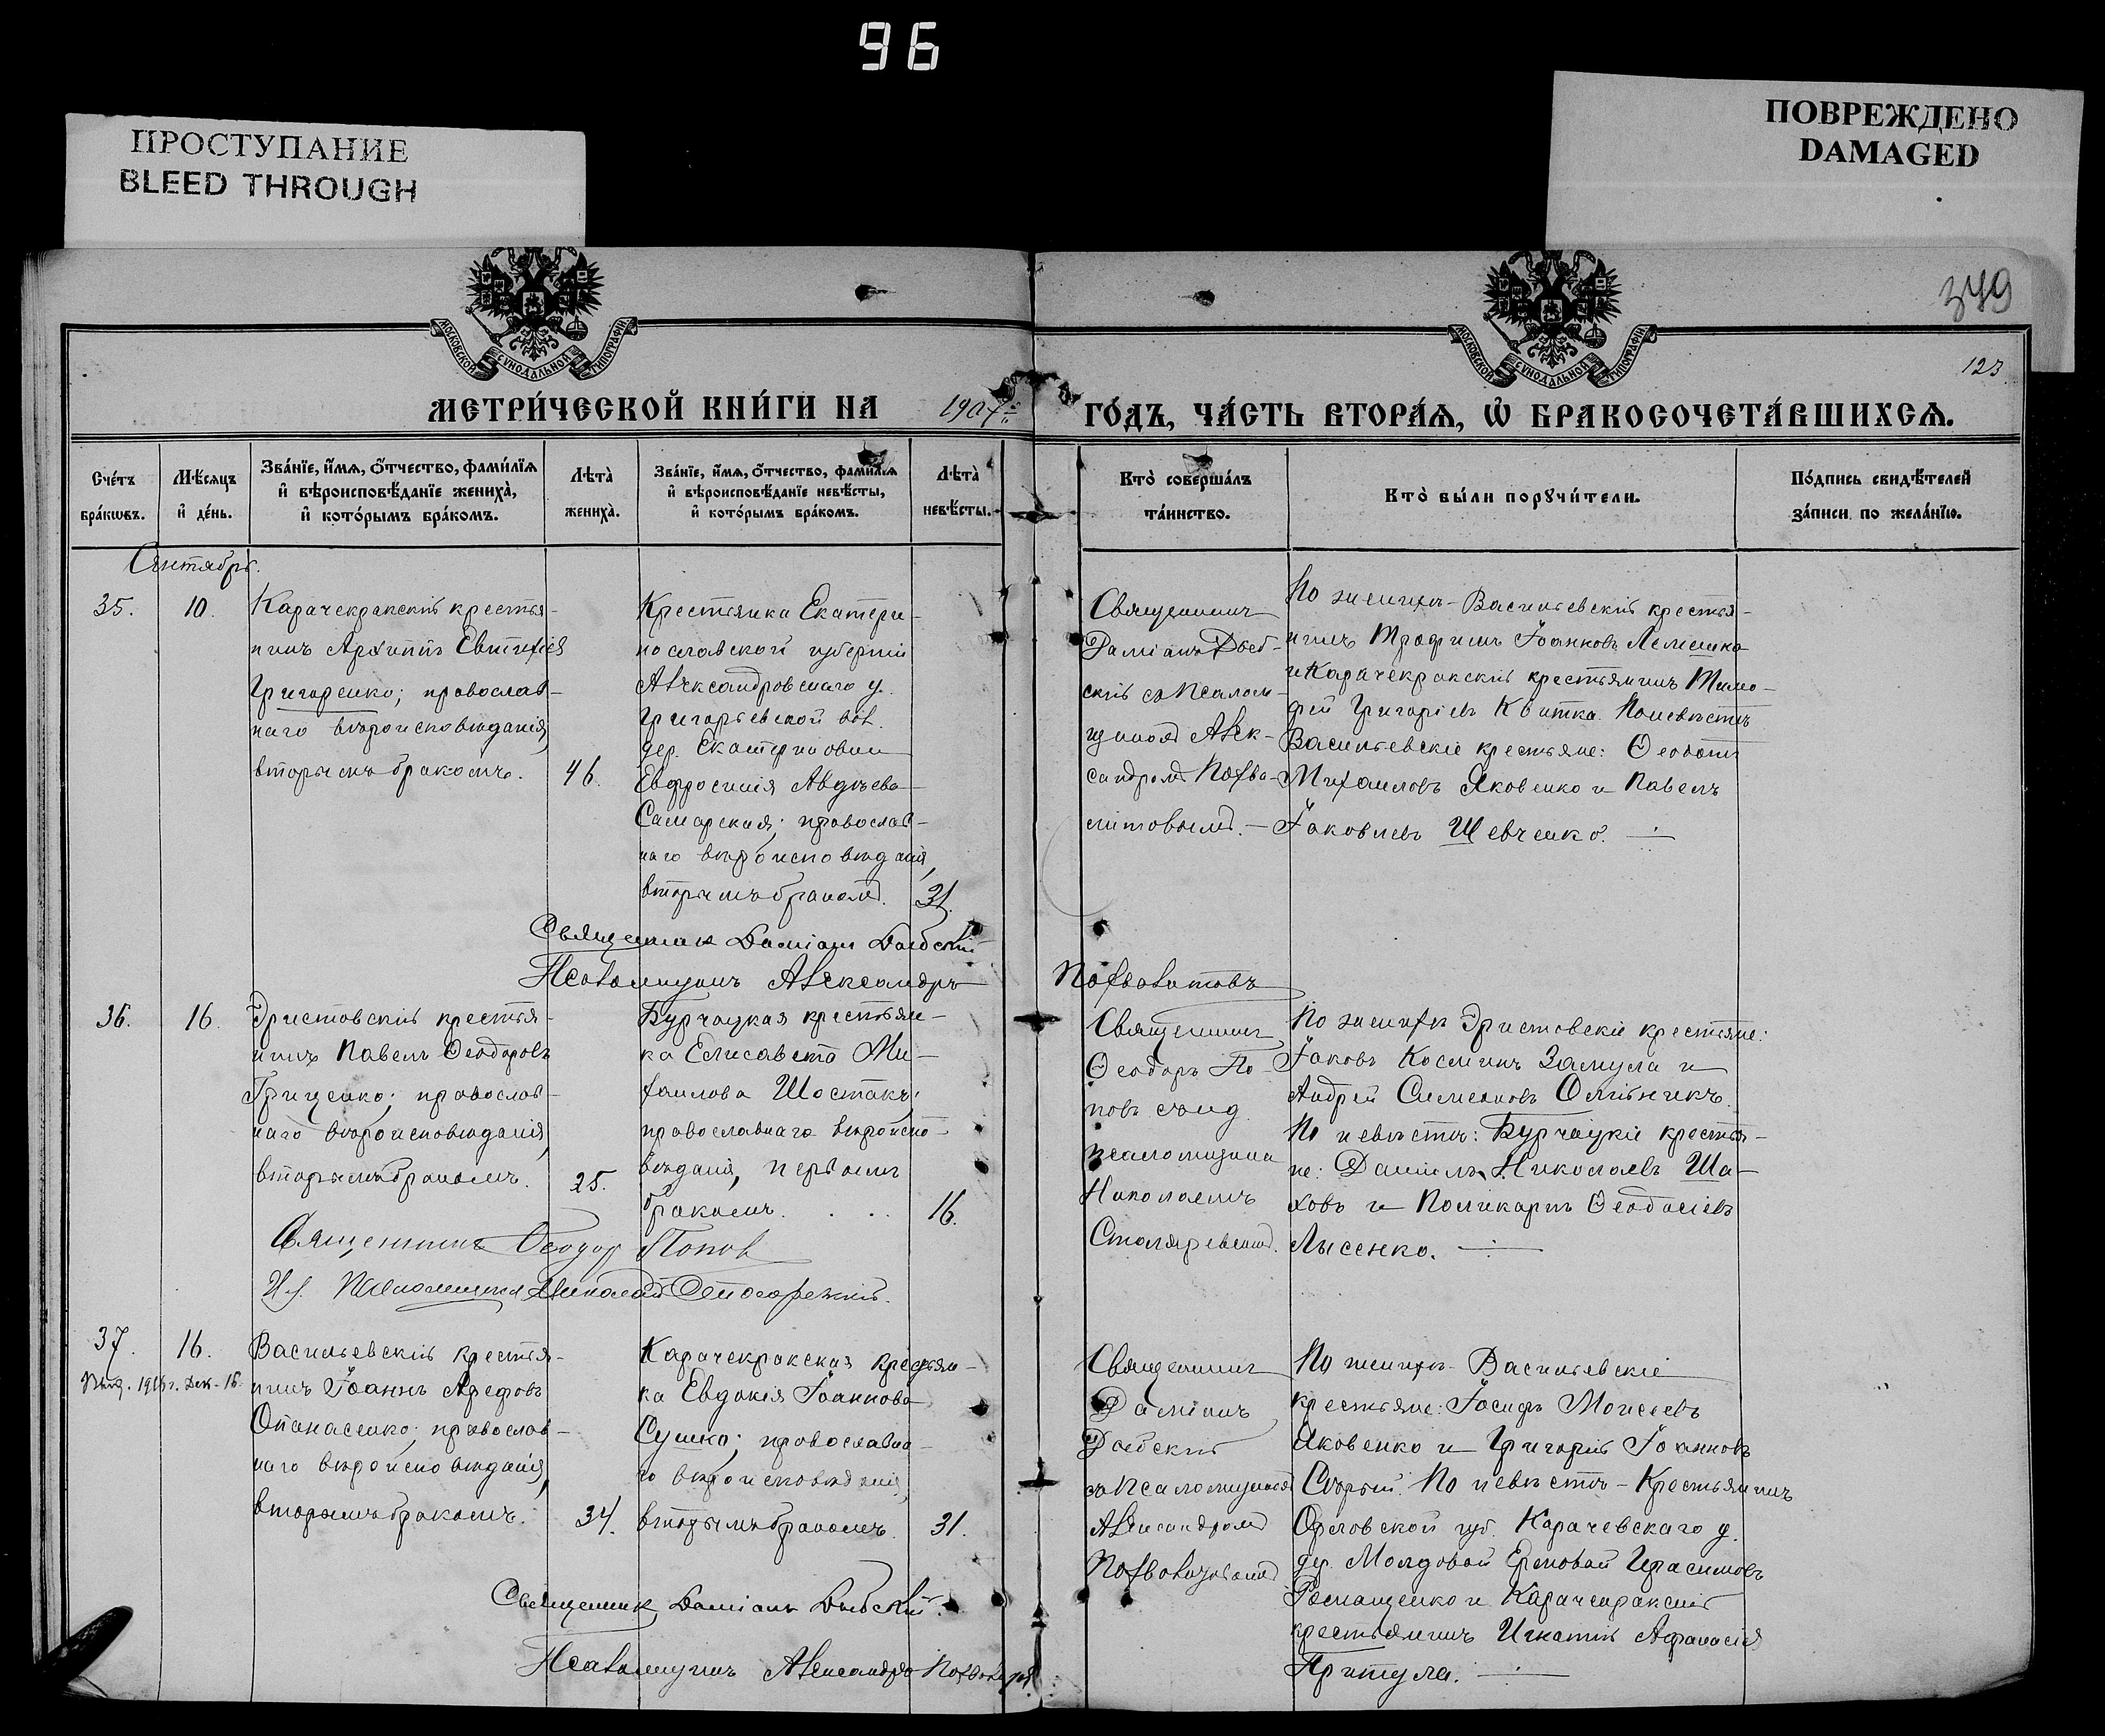 96
ПРОСТУПАНИЕ
BLEED THROUGH
ПОВРЕЖДЕНО
DAMAGED
349
МОСКОВСКОЙ СѴНОДАЛЬНОЙ ТИПОГРАФІИ
МОСКОВСКОЙ СѴНОДАЛЬНОЙ ТИПОГРАФІИ
123
МЕТРИ́ЧЕСКОЙ КНИ́ГИ НА 1907 ГО́ДЪ, ЧА́СТЬ ВТОРА́Я, Ѡ БРАКОСОЧЕТА́ВШИХСЯ.
Сче́тъ бра́кѡвъ.
Мѣ́сяцъ и҆ де́нь.
Зва́нїе, и҆́мя, ѻ҆́тчество, фами́лїя
и҆ вѣроисповѣ́данїе жениха̀,
и҆ кото́рымъ бра́комъ.
Лѣта̀ жениха̀.
Зва́нїе, и҆́мя, ѻ҆́тчество, фами́лїя
и҆ вѣроисповѣ́данїе невѣ́сты,
и҆ кото́рымъ бра́комъ.
Лѣта̀ невѣ́сты.
Кто̀ соверша́лъ та́инство.
Кто̀ бы́ли порꙋчи́тели.
По́дпись свидѣ́телей
за́писи по жела́нїю.
Сентябрь.
35.
10.
Карачекракскій крестья-
нинъ Архиппъ Евтихіев
Григоренко; православ-
наго вѣроисповѣданія,
вторымъ бракомъ.
46.
Крестьянка Екатери-
нославской губерніи
Александровскаго у.
Григорьевской вол.
дер. Екатериновки
Евфросинія Авдѣева
Самарская; православ-
наго вѣроисповѣданія,
вторымъ бракомъ.
31.
Священникъ
Даміанъ Доб-
скій съ псалом-
щикомъ Алек-
сандромъ Похва-
литовымъ.
По женихѣ - Васильевскій крестья-
нинъ Трофимъ Іоанновъ Лемешко
и Карачекракскій крестьянинъ Тимо-
фей Григоріевъ Квитка. По невѣстѣ
Васильевскіе крестьяне: Ѳеодотъ
Михаиловъ Яковенко и Павелъ
Іаковлевъ Шевченко.
Священник Даміан
Псаломщикъ Александръ
Похвалитовъ
36.
16.
Эристовскій крестья-
нинъ Павелъ Ѳеодоровъ
Гриценко; православ-
наго вѣроисповѣданія,
вторымъ бракомъ.
25.
Бурчацкая крестьян-
ка Елисавета Ми-
хаилова Шостакъ;
православнаго вѣроиспо-
вѣданія, первымъ
бракомъ.
16.
Священникъ
Ѳеодоръ По-
повъ съ и. д.
псаломщика
Николаемъ
По женихѣ Эристовскіе крестьяне:
Іаковъ Косминъ Замула и
Андрей Симеоновъ Олійникъ.
По невѣстѣ: Бурчацкіе крестья-
не: Даніилъ Николаевъ Ша-
ховъ и Поликарпъ Ѳеодосіевъ
Лысенко.
Священникъ Ѳеодор Попов
И. д. псаломщика Николай
37.
16.
Васильевскій крестья-
нинъ Іоаннъ Арефовъ
Опанасенко; православ-
наго вѣроисповѣданія,
вторымъ бракомъ.
34.
Карачекракская крестьян-
ка Евдокія Іоаннова
Сушко; православна-
го вѣроисповѣданія,
вторымъ бракомъ.
31.
Священникъ
Даміанъ
съ псаломщикомъ
Александромъ
По женихѣ - Васильевскіе
крестьяне: Іосифъ Моисеевъ
Яковенко и Григорій Іоанновъ
По невѣстѣ - Крестьянинъ
Орловской губ. Карачевскаго у.
Ромащенко и Карачекракскій
крестьянинъ Игнатій Афанасіев
Притула.
Священник Даміан
Псаломщикъ Александръ